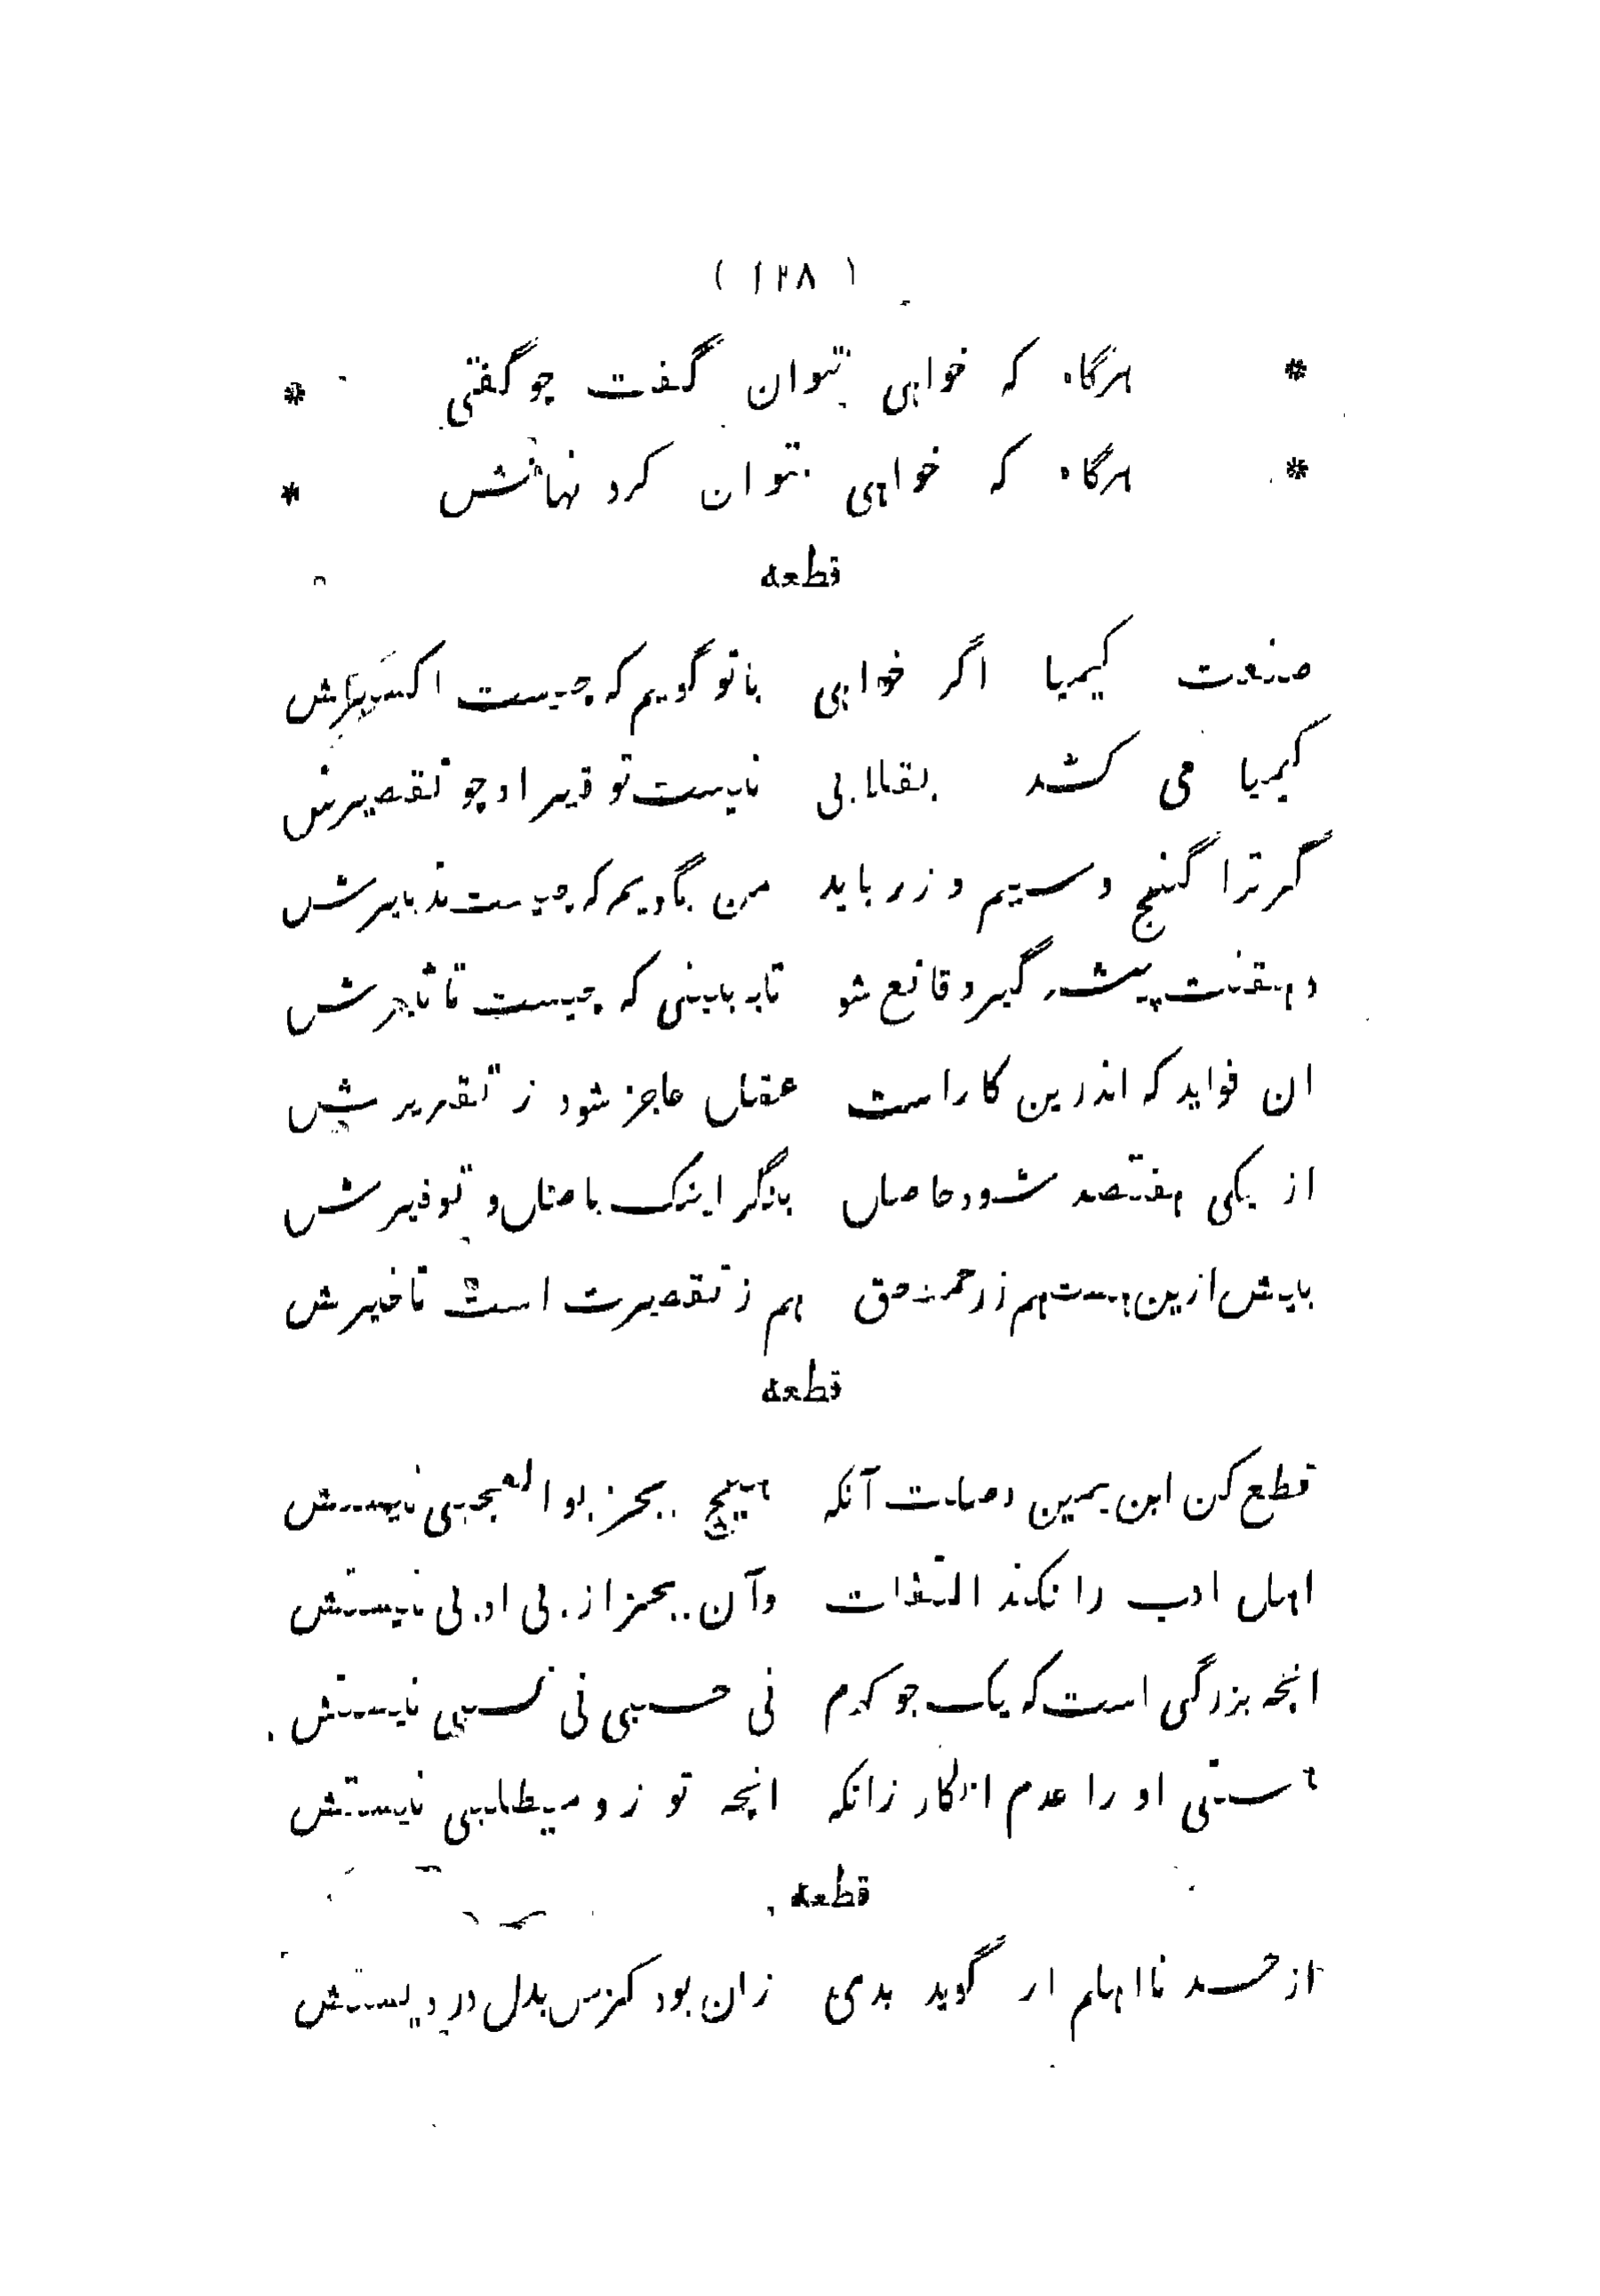 ( ۱۲۸ )
* هرگاه که خواهی توان گفت چو گفتی *
* هرگاه که خواهی نتوان کرد نهانش *
قطعه
صنعت کیمیا اگر خواهی باتو گویم که چیست اکسیرش
کیمیا می کشد بقلابی نیست توقیر او چو تقصیرش
گر ترا گنج و سیم و زر باید من بگویم که چیست تدبیرش
دهقنت پیشه گیر و قانع شو تا به بینی که چیست تاثیرش
ان فواید که اندرین کار است عقل عاجز شود ز تقریرش
از یکی هفتصد شود حاصل بنگر اینک باصل و توفیرش
بیش ازین هست هم ز رحمت حق هم ز تقصیرت است تاخیرش
قطعه
قطع کن ابن یمین وصلت آنکه هیچ بجز بو العجبی نیستش
اهل ادب را نکند التفات وآن بجز از بی ادبی نیستش
انچه بزرگی است که یک جو کرم نی حسبی نی نسبی نیستش
هستی او را عدم انکار زانکه انچه تو زو میطلبی نیستش
قطعه
از حسد نااهلم ار گوید بدی زان بود کز من بدل درد یستش